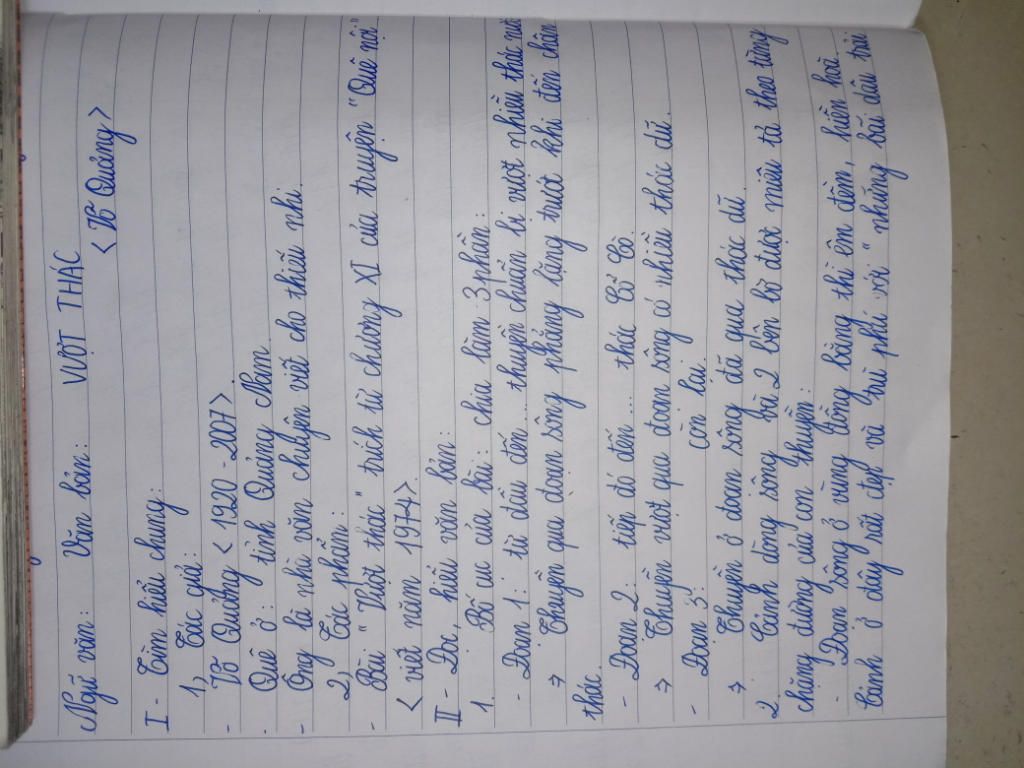 Ngữ văn: Văn bản: VƯỢT THÁC
< Võ Quảng >
I - Tìm hiểu chung:
1, Tác giả:
- Võ Quảng < 1920 - 2007 >.
. Quê ở: tỉnh Quảng Nam.
- Ông là nhà văn chuyên viết cho thiếu nhi.
2, Tác phẩm:
- Bài " Vượt thác " trích từ chương XI của truyện " Quê nội "
< viết năm 1974 >.
II - Đọc, hiểu văn bản:
1. Bố cục của bài: chia làm 3 phần:
- Đoạn 1: từ đầu đến... thuyền chuẩn bị vượt nhiều thác nước
→ Thuyền qua đoạn sông phẳng lặng trước khi đến chân
thác.
- Đoạn 2: tiếp đó đến... thác Cổ Cò.
→ Thuyền vượt qua đoạn sông có nhiều thác dữ.
- Đoạn 3: còn lại.
→ Thuyền ở đoạn sông đã qua thác dữ
2. Cảnh dòng sông và 2 bên bờ được miêu tả theo từng
chặng đường của con thuyền:
- Đoạn sông ở vùng đồng bằng thì êm đềm, hiền hoà
Cảnh ở đây rất đẹp và trù phú với " những bãi dâu trải